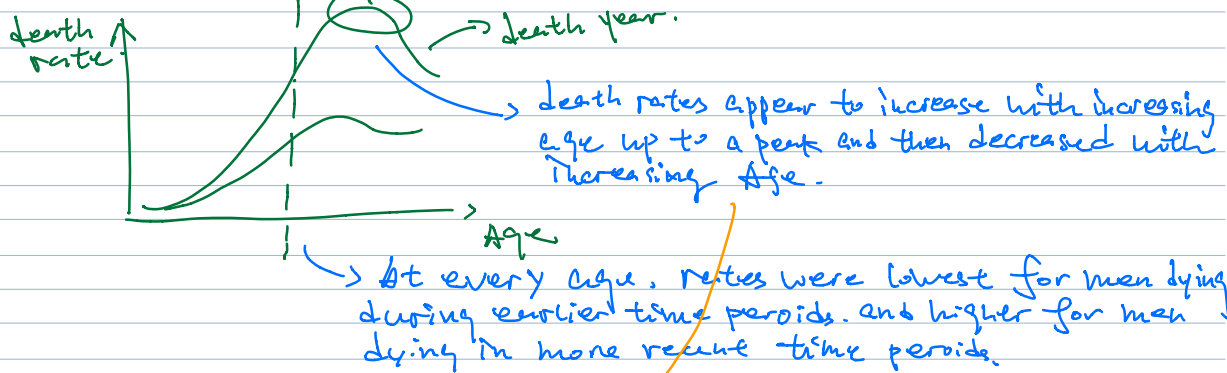 death
rate
death year.
death rates appear to increase with increasing
age up to a peak and then decreased with
increasing Age.
Age
At every age, rates were lowest for men dying
during earlier time peroids. and higher for men
dying in more recent time peroids.